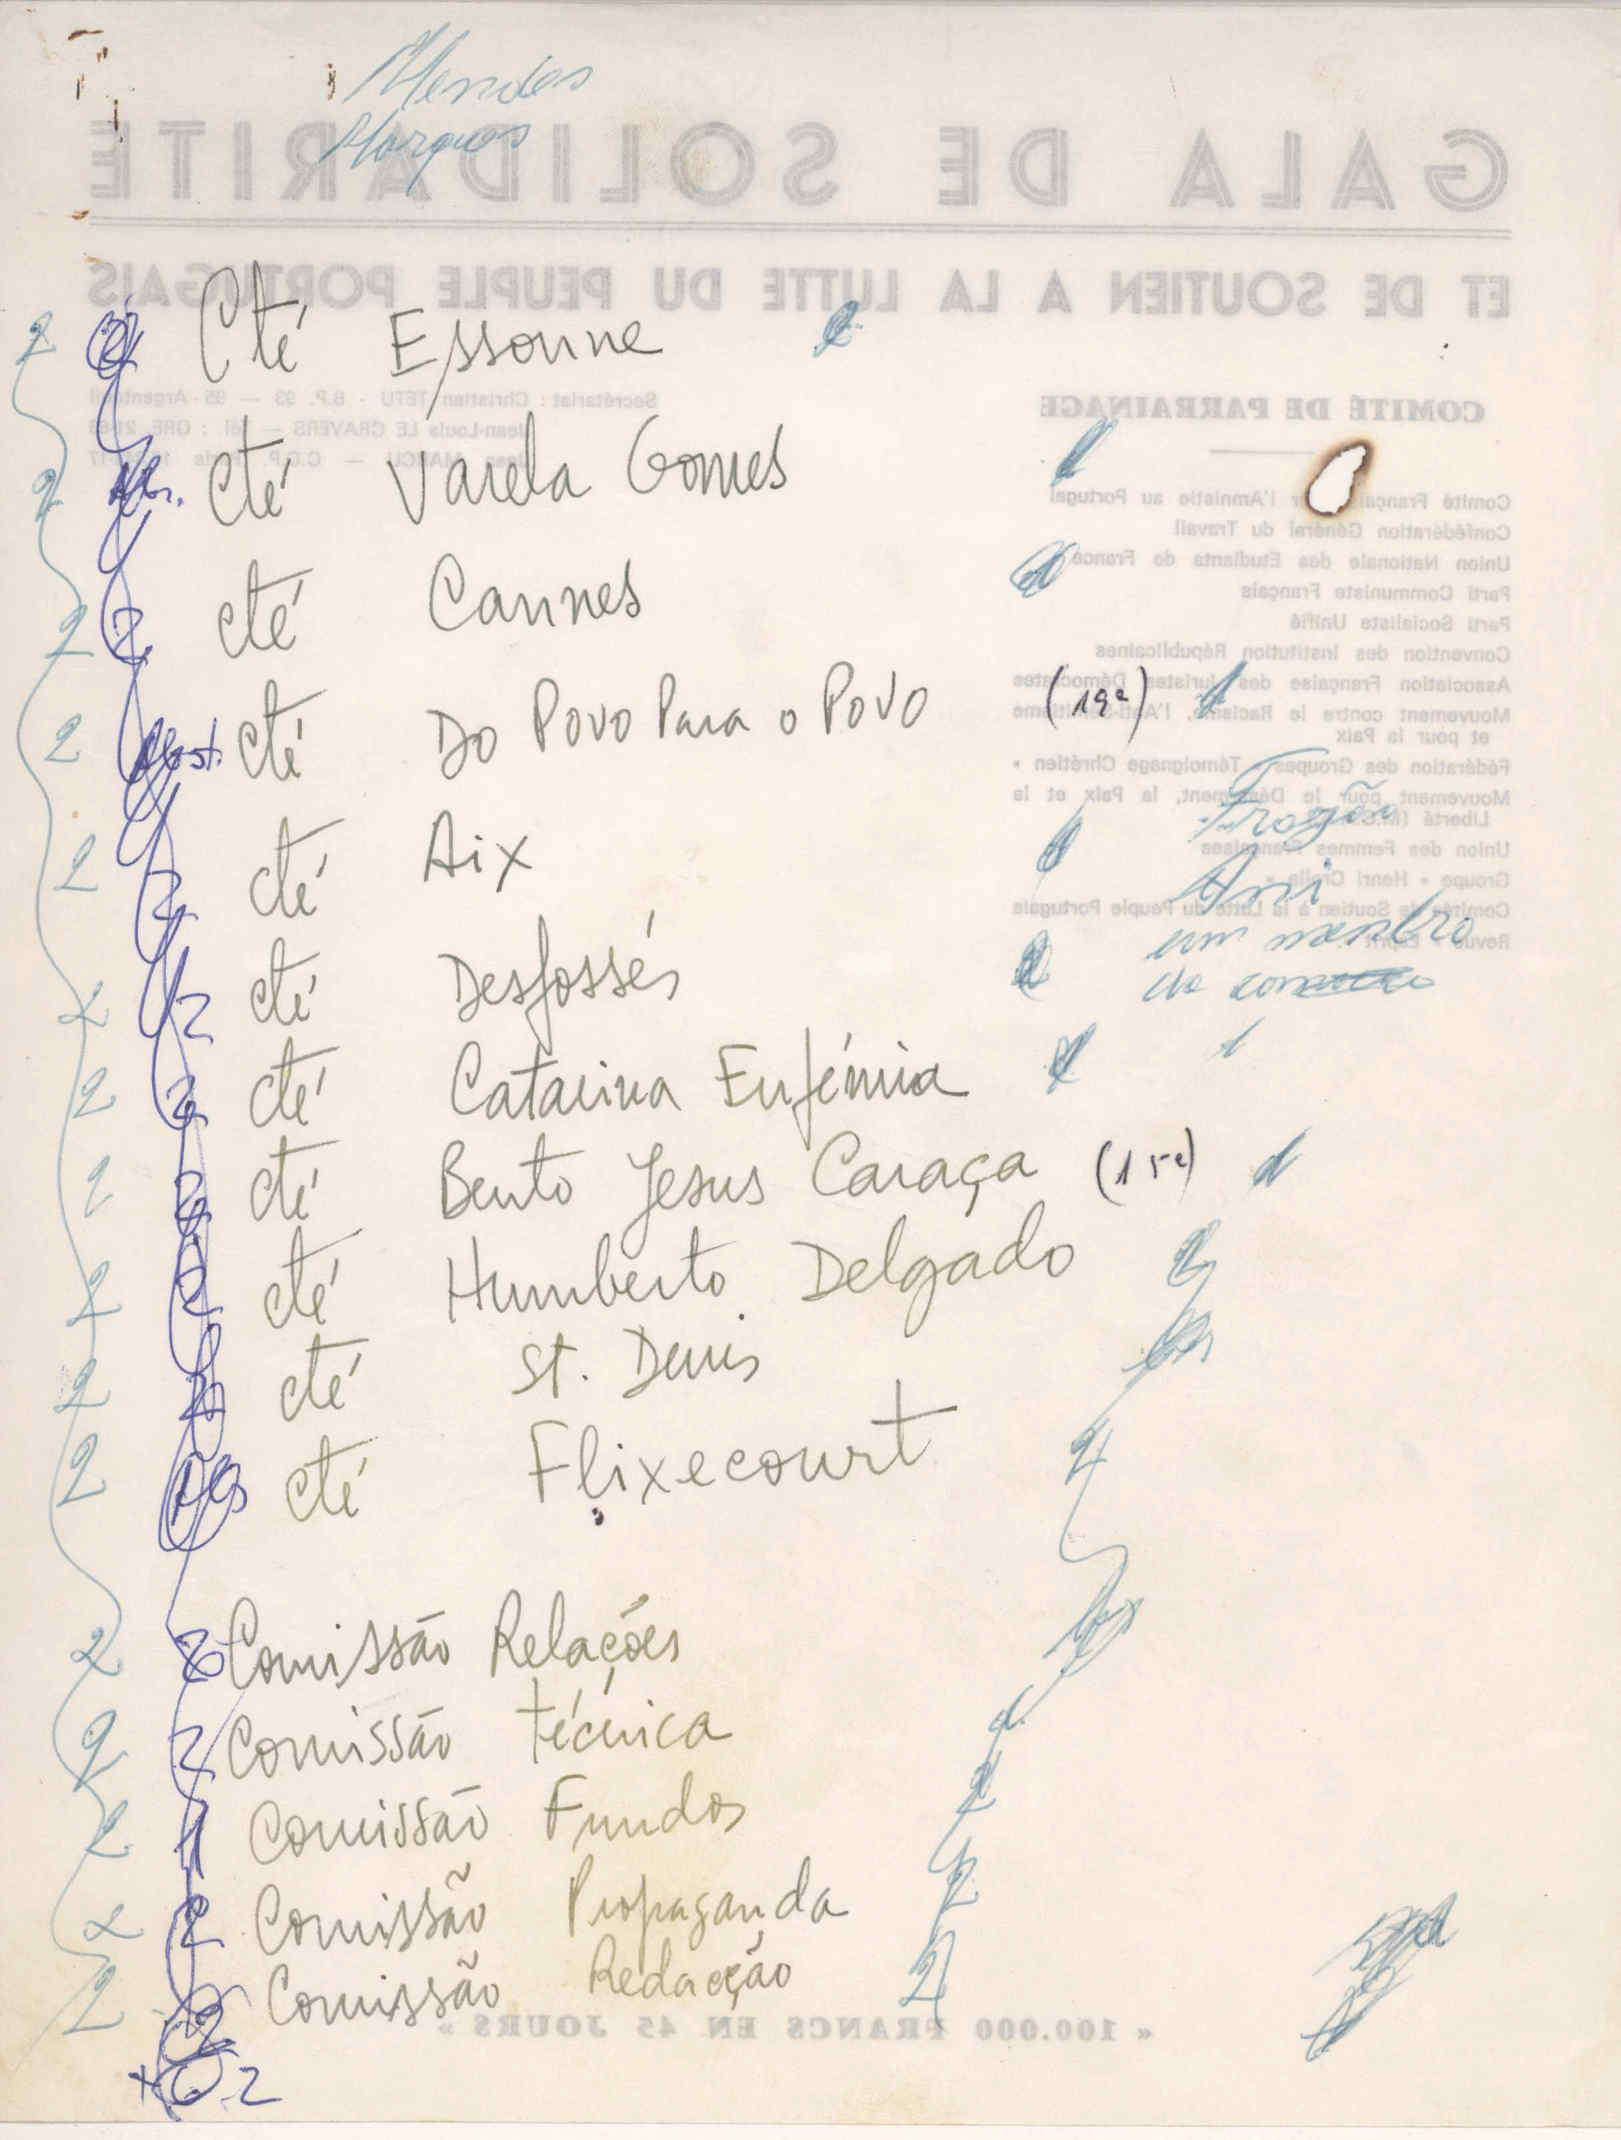 Mendes
Marques
GALA DE SOLIDARITE
ET DE SOUTIEN A LA LUTTE DU PEUPLE PORTUGAIS
2 Cté Essonne
Secrétariat : Christian TETU - B.P. 93 — 95 - Argenteuil
COMITÉ DE PARRAINAGE
Jean-Louis LE GRAVERS — Tél. : GRE.
2 Cté Varela Gomes
— C.C.P. Paris
Comité l'Amnistie au Portugal
Confédération Général du Travail
Union Nationale des Etudiants de France
2 2 Cté Cannes
Parti Communiste Français
Parti Socialiste Unifié
Convention des Institution Républicaines
2 Abst. Cté Do Povo Para o Povo (19ª)
Association Française des Juristes Démocrates
Mouvement contre le l'Anti-Sémitisme
et pour la Paix
Fédération des Groupes « Témoignage Chrétien »
Mouvement pour le la Paix et la
Liberté
Frazão
2 2 Cté Aix
Union des Femmes Françaises
Groupe « Henri »
Ani
Comités de Soutien à la Lutte du Peuple Portugais
Revue « Esprit »
um membro
da
2 2 Cté Desfossés
2 2 Cté Catarina Eufémia 1
2 2 Cté Bento Jesus Caraça (15ª)
2 2 Cté Humberto Delgado 2
2 Cté St. Denis
2 Cté Flixecourt 2
2 2 Comissão Relações
2 2 Comissão técnica
2 1 Comissão Fundos 2
2 2 Comissão Propaganda 2
2 Comissão Redacção 2
« 100.000 FRANCS EN 45 JOURS »
2
2